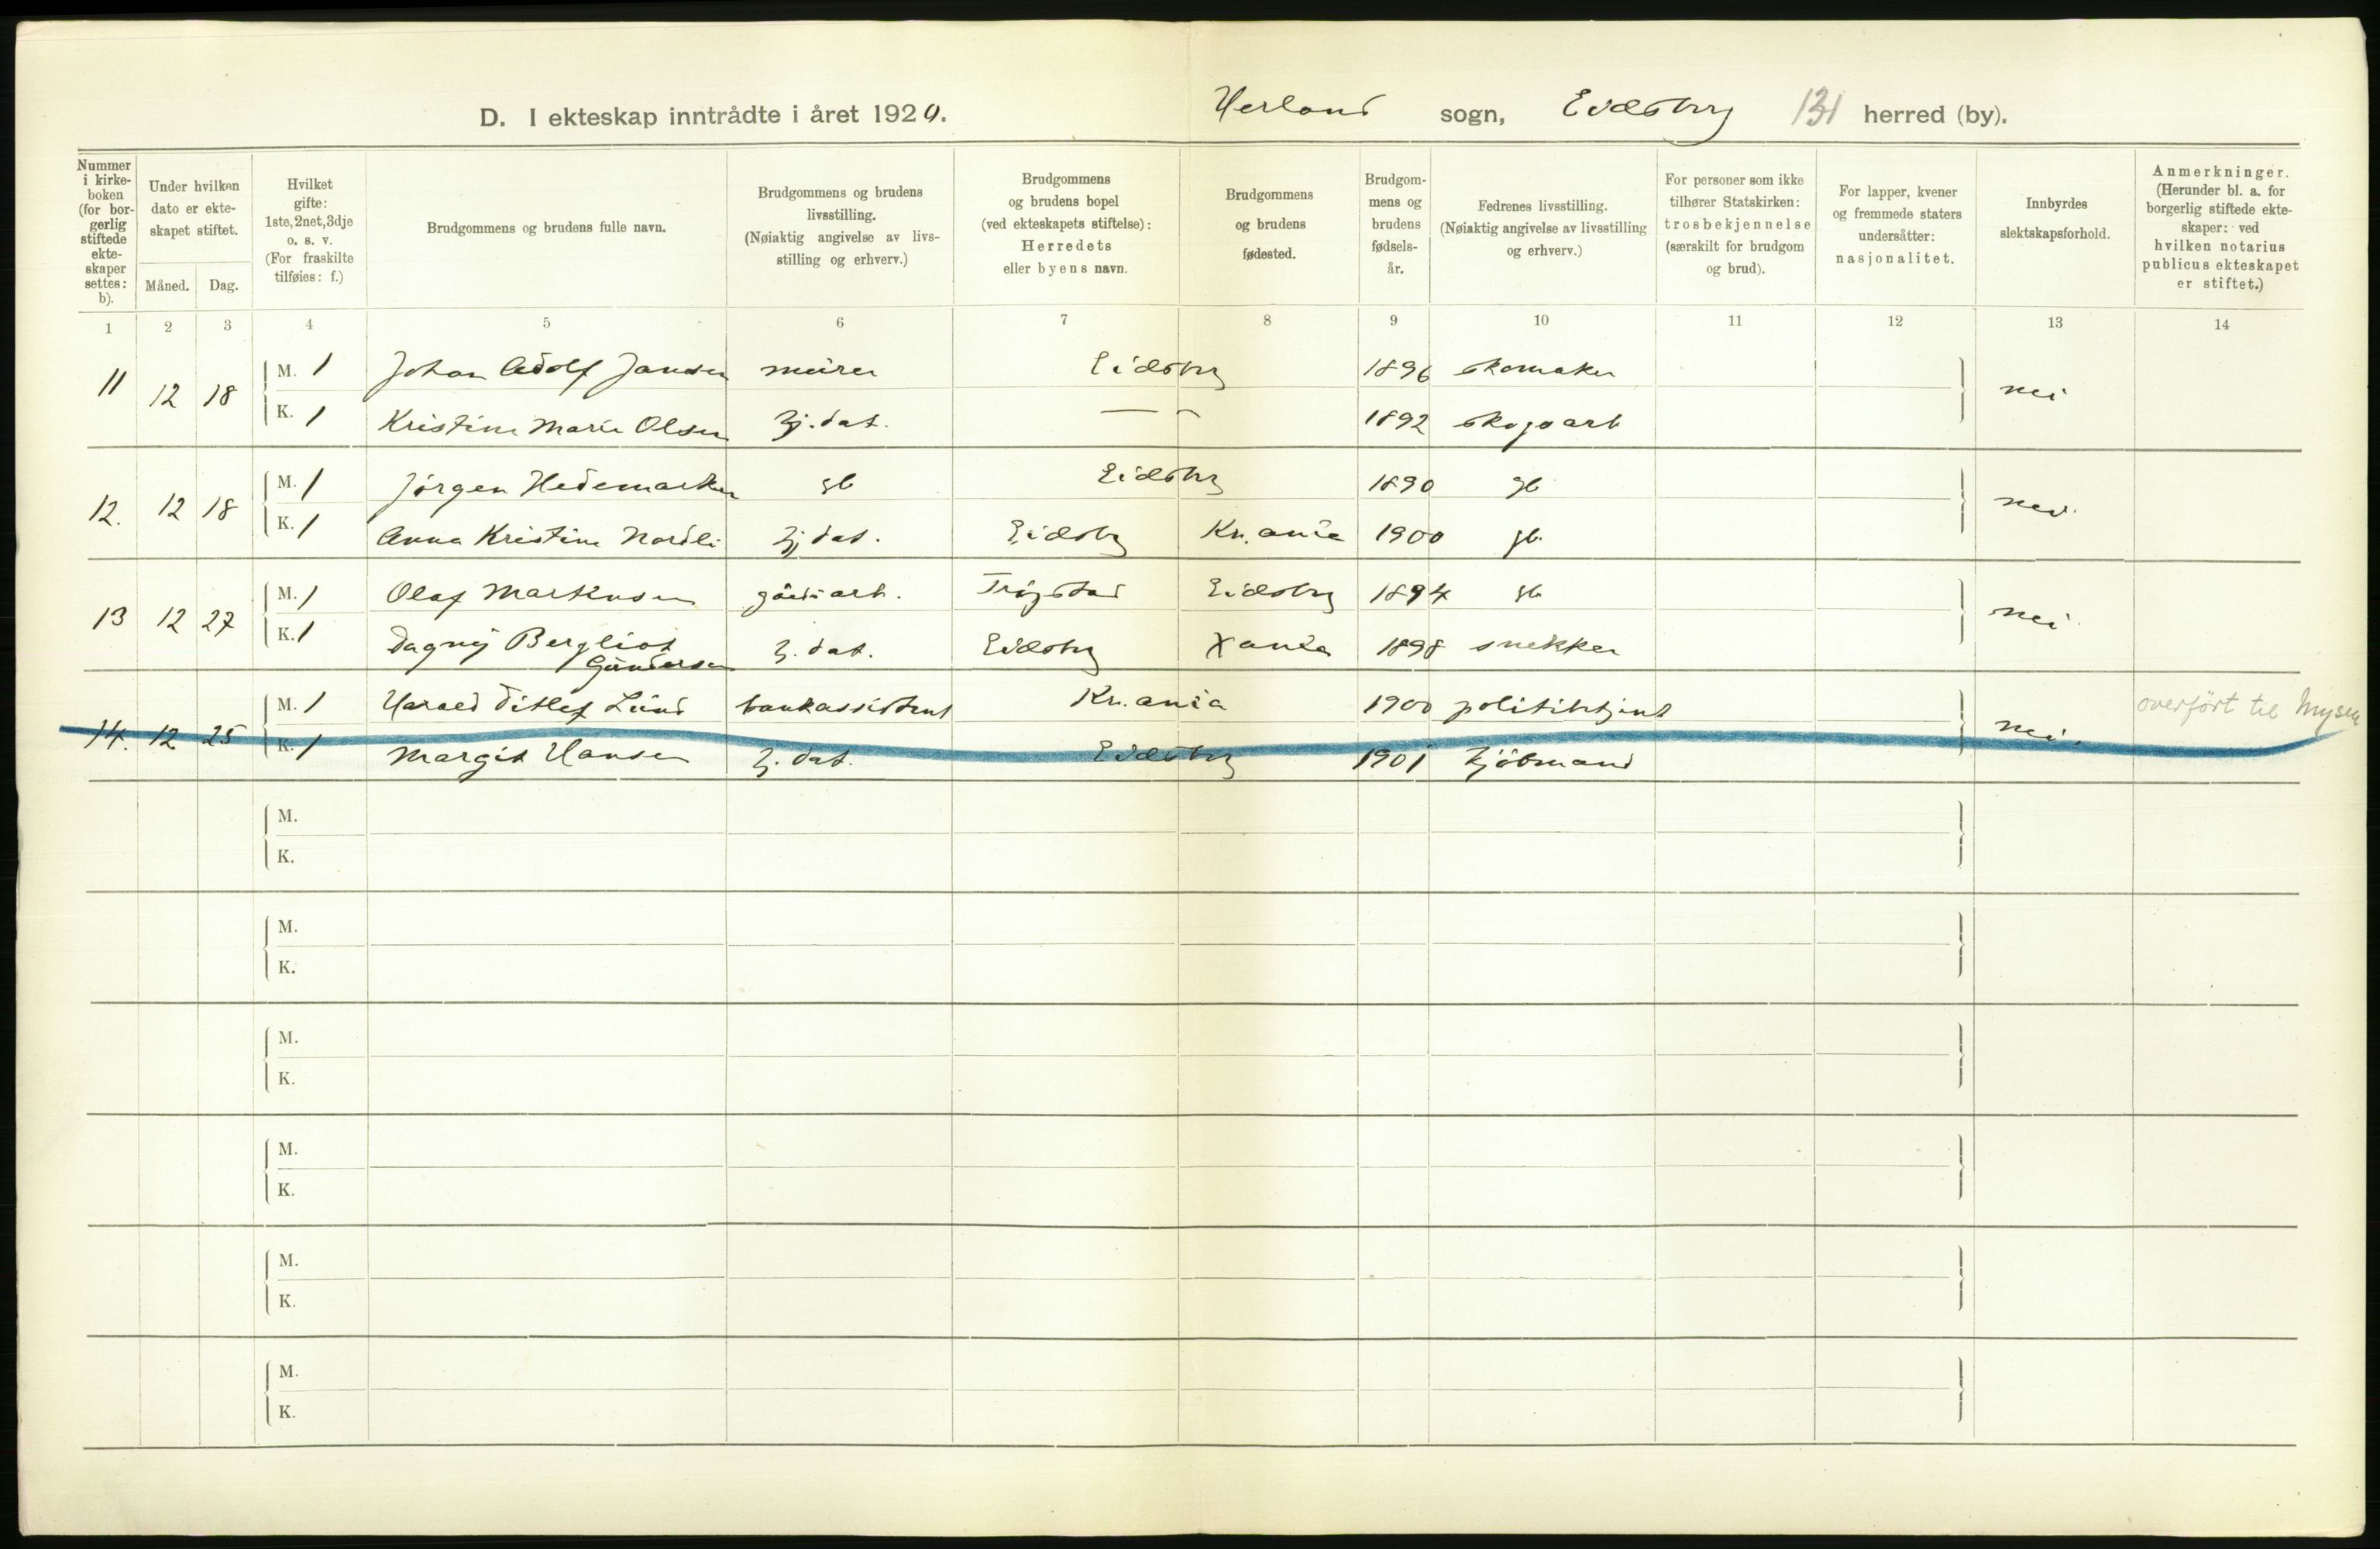 D. I ekteskap inntrådte i året 1920. Herland sogn, Eidsberg 131 herred (by).
Nummer i kirke-boken (for bor-gerlig stiftede ekte-skaper settes: b).
Under hvilken dato er ekte-skapet stiftet.
Måned. Dag.
Hvilket gifte: 1ste, 2net, 3dje o. s. v. (For fraskilte tilføies: f.)
Brudgommens og brudens fulle navn.
Brudgommens og brudens livsstilling. (Nøiaktig angivelse av livs-stilling og erhverv.)
Brudgommens og brudens bopel (ved ekteskapets stiftelse): Herredets eller byens navn.
Brudgommens og brudens fødested.
Brudgom-mens og brudens fødsels-år.
Fedrenes livsstilling. (Nøiaktig angivelse av livsstilling og erhverv.)
For personer som ikke tilhører Statskirken: trosbekjennelse (særskilt for brudgom og brud).
For lapper, kvener og fremmede staters undersåtter: nasjonalitet.
Innbyrdes slektskapsforhold.
Anmerkninger. (Herunder bl. a. for borgerlig stiftede ekte-skaper: ved hvilken notarius publicus ekteskapet er stiftet.)
1 2 3 4 5 6 7 8 9 10 11 12 13 14
11 12 18 M. 1 Johan Adolf Jansen murer Eidsberg 1896 skomaker nei
K. 1 Kristine Marie Olsen Hj. dat. — " — 1892 skogsarb
12. 12 18 M. 1 Jörgen Hedemarken gb Eidsberg 1890 gb nei.
K. 1 Anna Kristine Nordli Hj dat. Eidsberg Kr.ania 1900 gb.
13 12 27 M. 1 Olaf Markusen gårdsarb. Trögstad Eidsberg 1894 gb nei.
K. 1 Dagny Bergliot Gundersen H. dat. Eidsberg Xania 1898 snekker
14. 12 25 M. 1 Harald Ditlef Lund bankassistent Kr.ania 1900 politibtjent nei. overført til Mysen
K. 1 Margit Hansen H. dat. Eidsberg 1901 kjöbmand
M.
K.
M.
K.
M.
K.
M.
K.
M.
K.
M.
K.